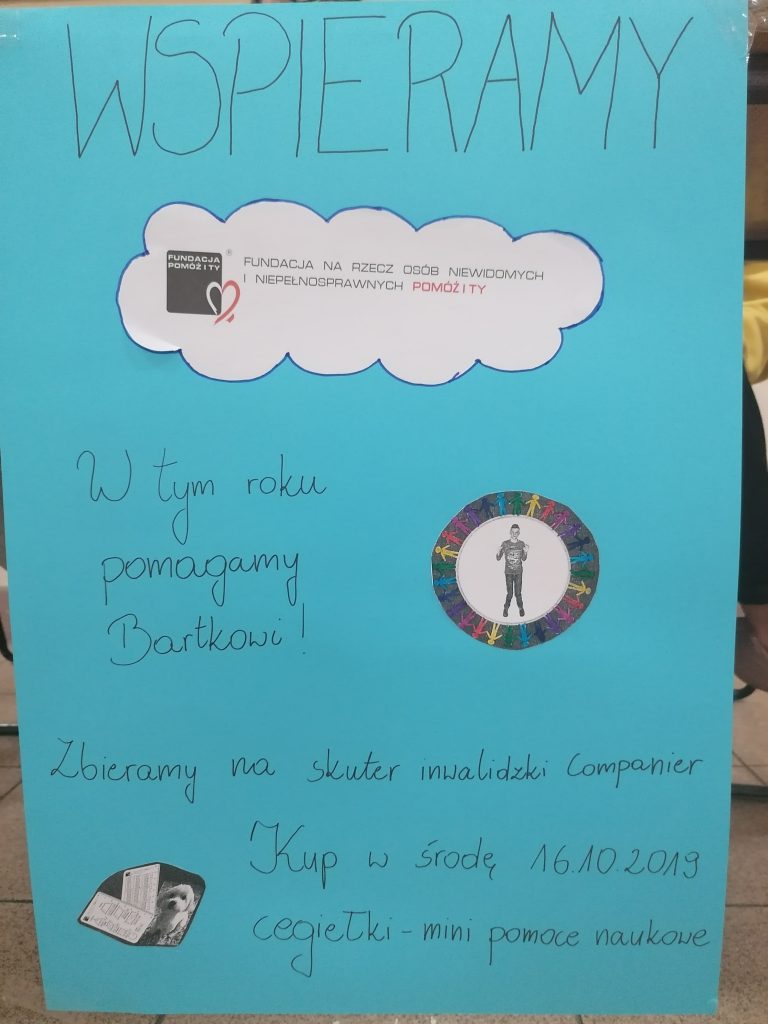 WSPIERAMY
FUNDACJA
POMÓŻ I TY
®
FUNDACJA NA RZECZ OSÓB NIEWIDOMYCH
I NIEPEŁNOSPRAWNYCH POMÓŻ I TY
W tym roku
pomagamy
Bartkowi!
Zbieramy na skuter inwalidzki Companier
Kup w środę 16.10.2019
cegiełki - mini pomoce naukowe